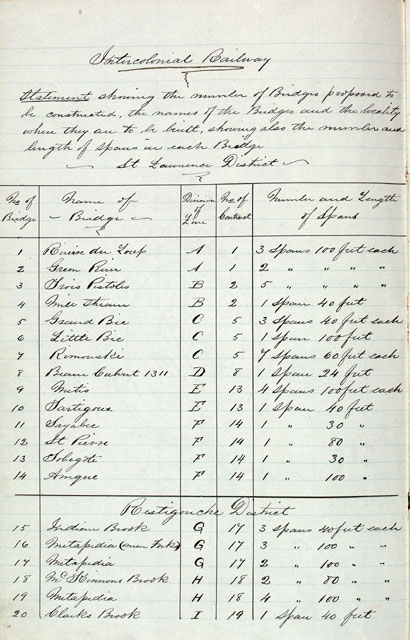 Intercolonial Railway
Statement showing the number of Bridges proposed to
be constructed, the names of the Bridges and the locality
where they are to be built, showing also the number and
length of spans in each Bridge
St Lawrence District
No of Bridge Name of Bridge Division of Line No of Contract Number and Length of Spans
1 Rivière du Loup A 1 3 Spans 100 feet each
2 Green River A 1 2 " " " "
3 Trois Pistoles B 2 5 " " " "
4 Mill Stream B 2 1 Span 40 feet
5 Grand Bic C 5 3 Spans 40 feet each
6 Little Bic C 5 1 Span 100 feet
7 Rimouski C 5 7 Spans 60 feet each
8 Beam Culvert 1311 D 8 1 Span 24 feet
9 Metis E 13 4 Spans 100 feet each
10 Tartigoux E 13 1 Span 40 feet
11 Sayabec F 14 1 " 30 "
12 St Pierre F 14 1 " 80 "
13 F 14 1 " 30 "
14 Amqui F 14 1 " 100 "
Restigouche District
15 Indian Brook G 17 3 Spans 40 feet each
16 Metapedia ( Forks) G 17 3 " 100 " "
17 Metapedia G 17 2 " 100 " "
18 Brook H 18 2 " 80 " "
19 Metapedia H 18 4 " 100 " "
20 Clarks Brook I 19 1 Span 40 feet